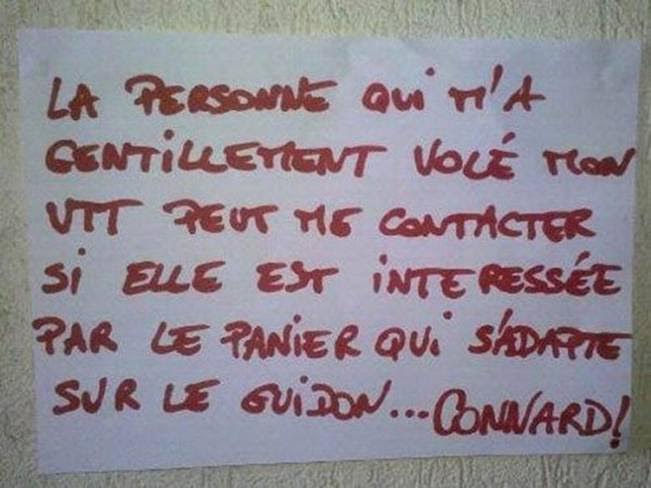 LA PERSONNE QUi M'A
GENTiLLEMENT VOLÉ MON
VTT PEUT ME CONTACTER
Si ELLE EST iNTERESSÉE
PAR LE PANiER QUi S'ADAPTE
SUR LE GUiDON... CONNARD!